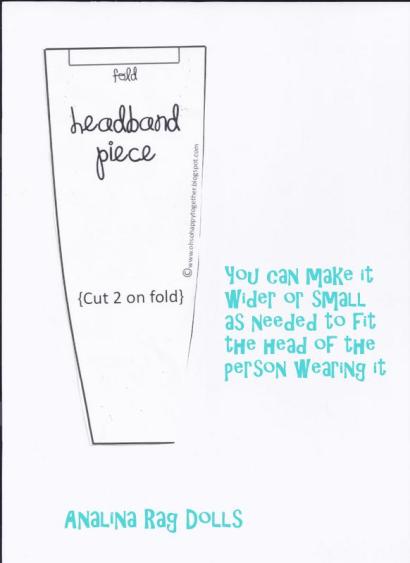 fold
headband
piece
©www.ohsohappytogether.blogspot.com
{Cut 2 on fold}
You can Make it
Wider or Small
as Needed to Fit
the Head of the
person Wearing it
Analina Rag Dolls